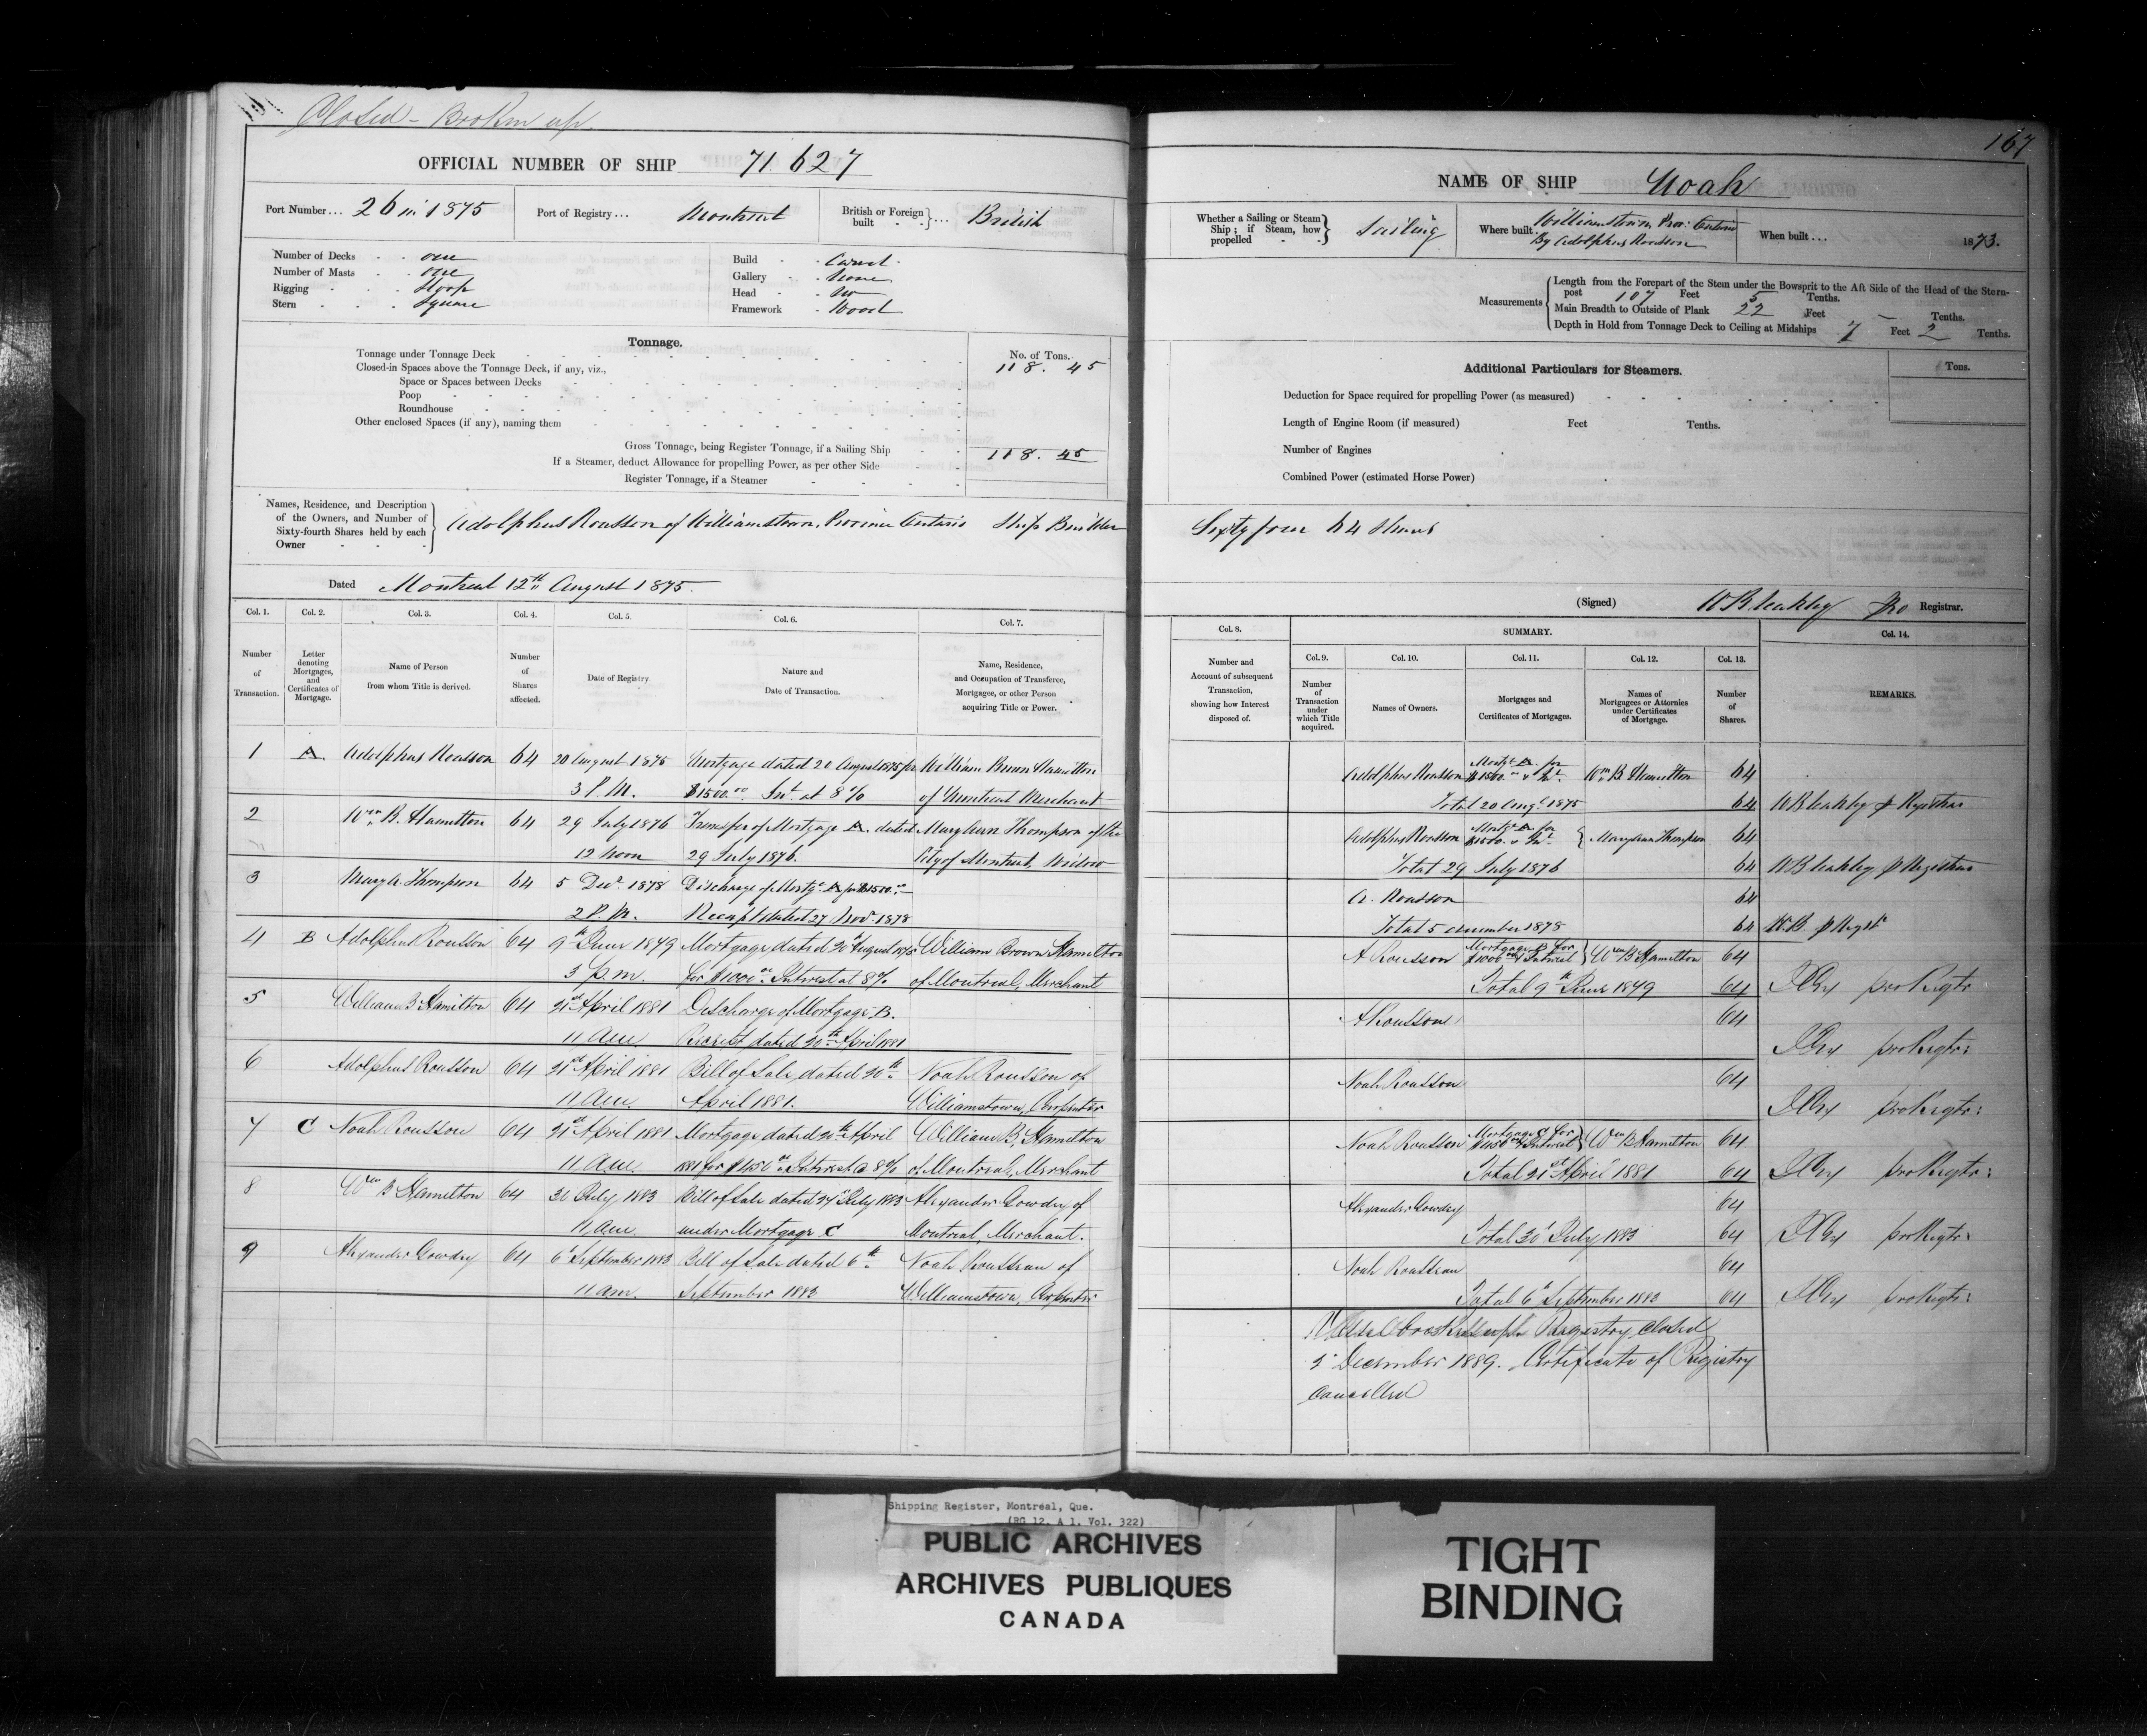 Closed - Broken up
OFFICIAL NUMBER OF SHIP 71.627
Port Number... 26 in 1875
Port of Registry... Montreal
British or Foreign built - - }... British
Number of Decks - - one
Number of Masts - - one
Rigging - - - Sloop
Stern - - - Square
Build - - Carvel
Gallery - None
Head - - No
Framework - Wood
Tonnage.
No. of Tons.
Tonnage under Tonnage Deck
118. 45
Closed-in Spaces above the Tonnage Deck, if any, viz.,
Space or Spaces between Decks
Poop
Roundhouse
Other enclosed Spaces (if any), naming them
Gross Tonnage, being Register Tonnage, if a Sailing Ship
118. 45
If a Steamer, deduct Allowance for propelling Power, as per other Side
Register Tonnage, if a Steamer
Names, Residence, and Description
of the Owners, and Number of
Sixty-fourth Shares held by each
Owner
Adolphus Rousson of Williamstown, Province Ontario Ship Builder
Dated Montreal 12th August 1875.
Col. 1. Col. 2. Col. 3. Col. 4. Col. 5. Col. 6. Col. 7.
Number of Transaction.
Letter denoting Mortgages, and Certificates of Mortgage.
Name of Person from whom Title is derived.
Number of Shares affected.
Date of Registry.
Nature and Date of Transaction.
Name, Residence, and Occupation of Transferee, Mortgagee, or other Person acquiring Title or Power.
1 A. Adolphus Rousson 64 20 August 1875 Mortgage dated 20 August 1875 for William Brown Hamilton
3 P.M. $1500.00 Int. at 8% of Montreal Merchant
2 Wm B. Hamilton 64 29 July 1876 Transfer of Mortgage A. dated Mary Ann Thompson of the
12 Noon 29 July 1876. City of Montreal, Widow
3 Mary A. Thompson 64 5 Decr 1878 Discharge of Mortge A for $1500.00
2 P.M. Receipt dated 27 Novr 1878
4 B Adolphus Rousson 64 9th June 1879 Mortgage dated 20th August 1875 William Brown Hamilton
3 p.m. for $1000.00 Interest at 8% of Montreal, Merchant
5 William B. Hamilton 64 21st April 1881 Discharge of Mortgage B.
11 Am. Receipt dated 20th April 1881
6 Adolphus Rousson 64 21st April 1881 Bill of Sale dated 20th Noah Rousson of
11 Am. April 1881. Williamstown, Carpenter
7 C Noah Rousson 64 21st April 1881 Mortgage dated 20th April William B. Hamilton
11 Am. 1881 for $450.00 Interest @ 8% of Montreal, Merchant
8 Wm B Hamilton 64 30 July 1883 Bill of Sale dated 27 July 1883 Alexander Gowdey of
11 Am under Mortgage C Montreal, Merchant.
9 Alexander Gowdey 64 6 September 1883 Bill of Sale dated 6th Noah Rousseau of
11 am. September 1883 Williamstown, Carpenter
167
NAME OF SHIP Noah
Whether a Sailing or Steam Ship; if Steam, how propelled } Sailing
Where built. Williamstown Prov: Ontario
By Adolphus Rousson
When built... 1873.
Measurements
Length from the Forepart of the Stem under the Bowsprit to the Aft Side of the Head of the Stern-
post 107 Feet 5 Tenths.
Main Breadth to Outside of Plank 22 Feet - Tenths.
Depth in Hold from Tonnage Deck to Ceiling at Midships 7 Feet 2 Tenths.
Additional Particulars for Steamers.
Tons.
Deduction for Space required for propelling Power (as measured)
Length of Engine Room (if measured) Feet Tenths.
Number of Engines
Combined Power (estimated Horse Power)
Sixty four 64 Shares
(Signed) W Bleakley pro Registrar.
Col. 8. SUMMARY. Col. 14.
Col. 9. Col. 10. Col. 11. Col. 12. Col. 13.
Number and Account of subsequent Transaction, showing how Interest disposed of.
Number of Transaction under which Title acquired.
Names of Owners.
Mortgages and Certificates of Mortgages.
Names of Mortgagees or Attornies under Certificates of Mortgage.
Number of Shares.
REMARKS.
Adolphus Rousson Mortge A. for $1500.00 & Int. Wm B Hamilton 64
Total 20 Augt 1875 64 W Bleakley p Registrar
Adolphus Rousson Mortge A. for $1500. & Int. { Mary Ann Thompson 64
Total 29 July 1876 64 W Bleakley p Registrar
A. Rousson 64
Total 5 December 1878 64 W.B. p Regstr
A Rousson Mortgage B for $1000.00 & Interest } Wm B Hamilton 64
Total 9th June 1879 64 pro Regtr
A Rousson 64
pro Regtr:
Noah Rousson 64
pro Regtr:
Noah Rousson Mortgage C for $450.00 & Interest } Wm B Hamilton 64
Total 21st April 1881 64 pro Regtr:
Alexander Gowdey 64
Total 30 July 1883 64 pro Regtr.
Noah Rousseau 64
Total 6 September 1883 64 pro Regtr:
Vessel broken up. Registry closed
3 December 1889. Certificate of Registry
Cancelled
Shipping Register, Montreal, Que.
(RG 12, A 1, Vol. 322)
PUBLIC ARCHIVES
ARCHIVES PUBLIQUES
CANADA
TIGHT
BINDING